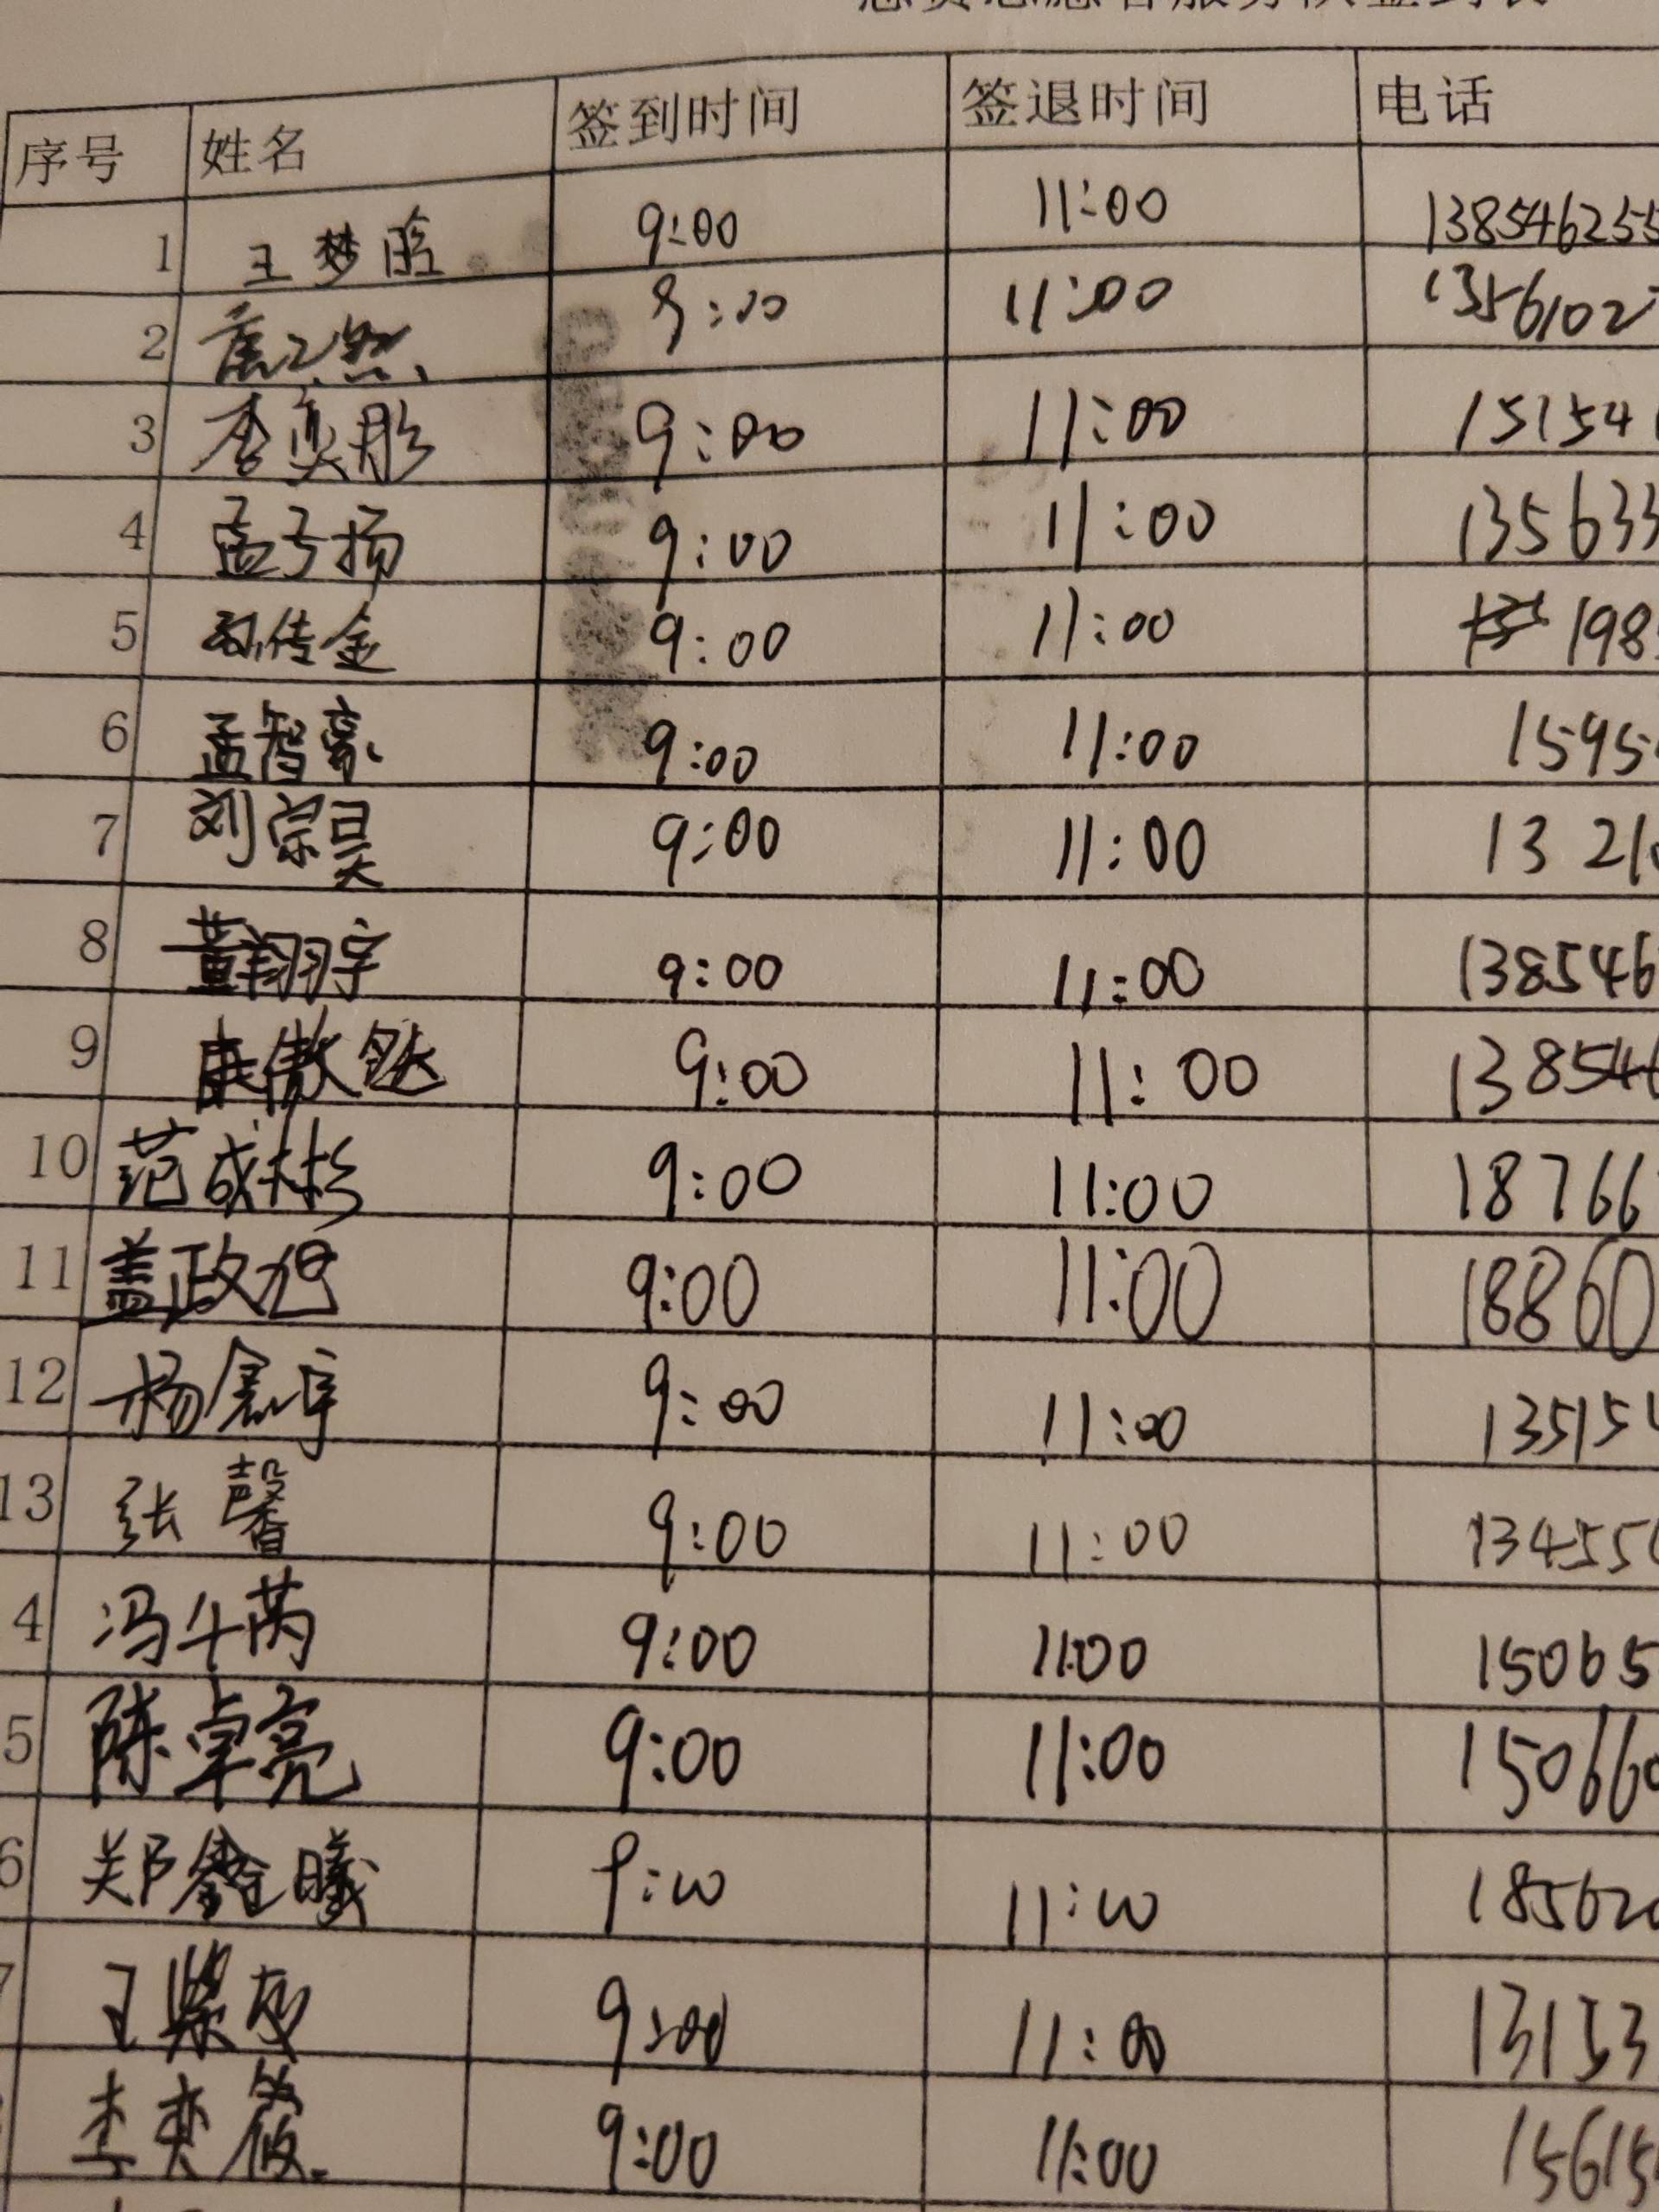 序号 姓名 签到时间 签退时间 电话
1 王梦晗 9:00 11:00 138546255
2 9:00 11:00 1356102
3 李奕彤 9:00 11:00 15154
4 孟子扬 9:00 11:00 135633
5 孙传金 9:00 11:00 198
6 孟智豪 9:00 11:00 1595
7 刘宗昊 9:00 11:00 13 21
8 董翔宇 9:00 11:00 138546
9 康傲然 9:00 11:00 138546
10 范成彬 9:00 11:00 18766
11 盖政旭 9:00 11:00 18860
12 杨 宇 9:00 11:00 13515
13 张馨 9:00 11:00 13455
4 冯 芮 9:00 11:00 15065
5 陈卓亮 9:00 11:00 15066
6 郑鑫曦 9:00 11:00 18562
7 王紫 9:00 11:00 13153
李奕筱 9:00 11:00 15615